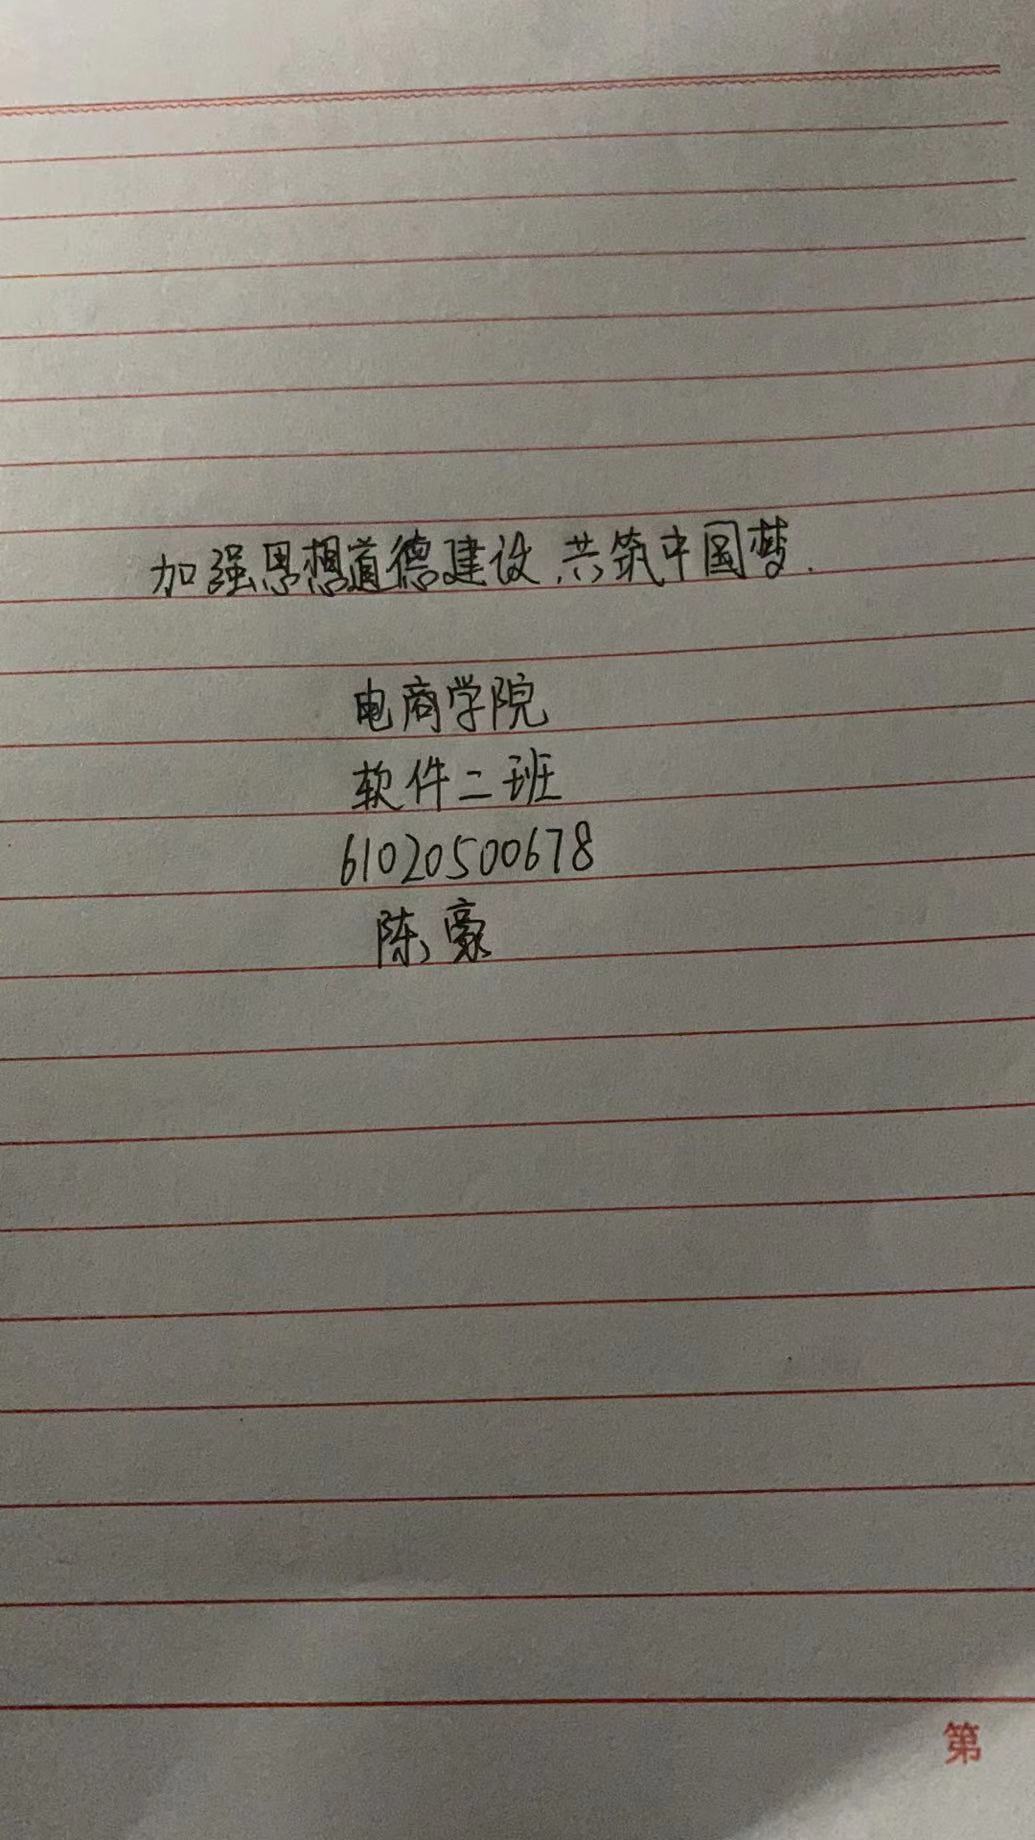 加强思想道德建设,共筑中国梦.
电商学院
软件二班
61020500678
陈豪
第